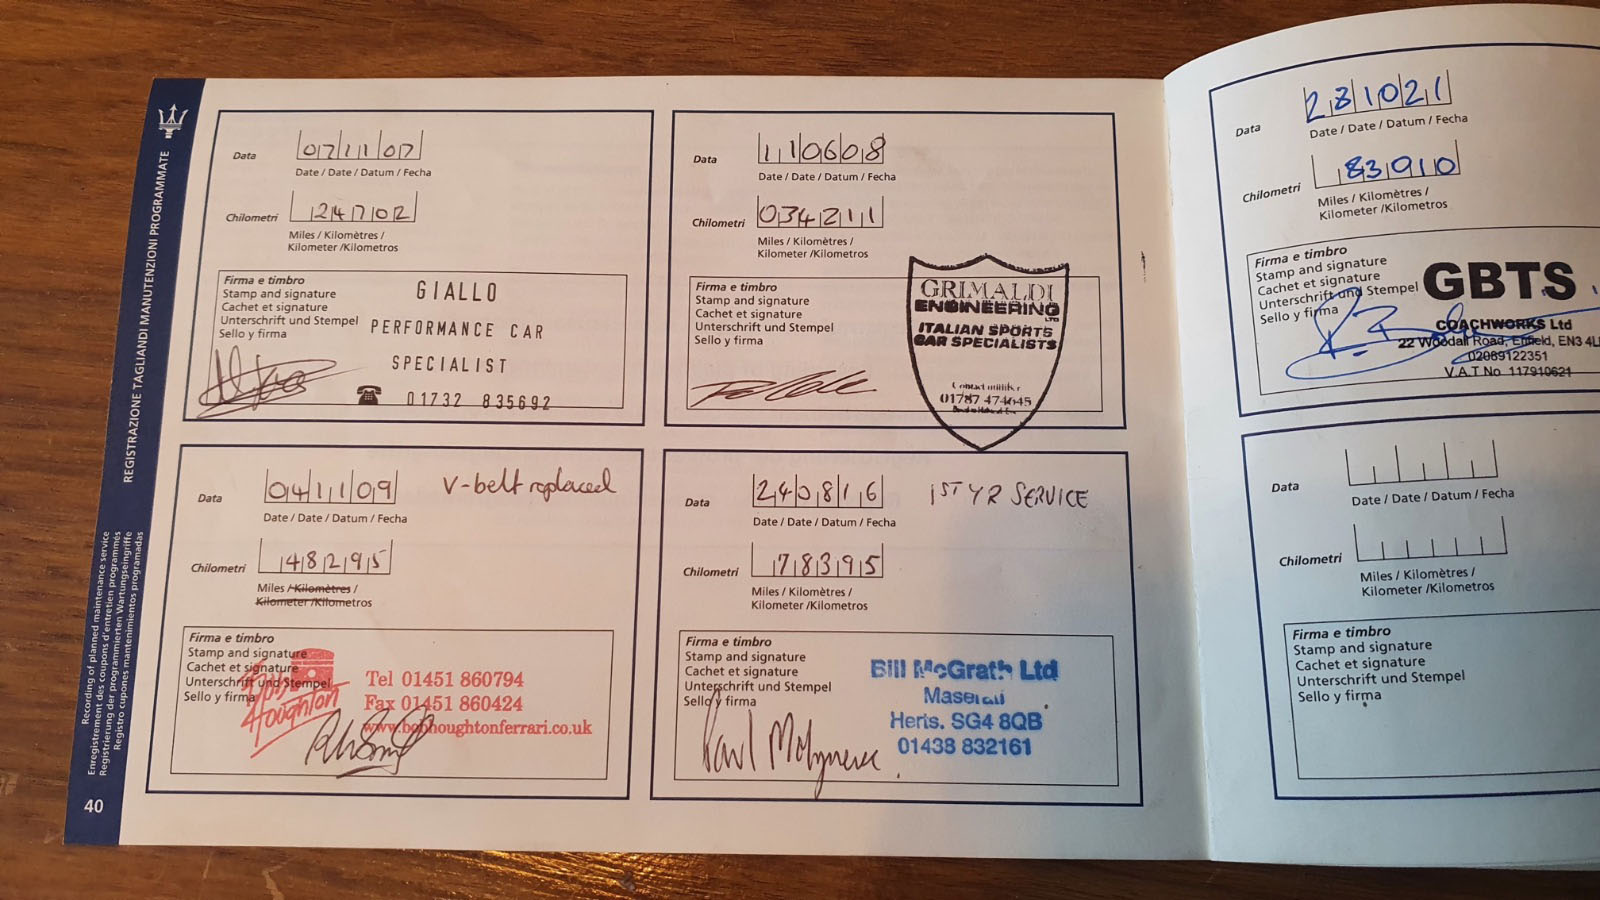 REGISTRAZIONE TAGLIANDI MANUTENZIONI PROGRAMMATE
Recording of planned maintenance service
Enregistrement des coupons d'entretien programmés
Registrierung der programmierten Wartungseingriffe
Registro cupones mantenimientos programadas
40
Data 071107
Date / Date / Datum / Fecha
Chilometri 24702
Miles / Kilomètres /
Kilometer /Kilometros
Firma e timbro
Stamp and signature
Cachet et signature
Unterschrift und Stempel
Sello y firma
GIALLO
PERFORMANCE CAR
SPECIALIST
☎ 01732 835692
Data 110608
Date / Date / Datum / Fecha
Chilometri 034211
Miles / Kilomètres /
Kilometer /Kilometros
Firma e timbro
Stamp and signature
Cachet et signature
Unterschrift und Stempel
Sello y firma
GRIMALDI
ENGINEERING
LTD
ITALIAN SPORTS
CAR SPECIALISTS
01787 474645
Data 041109 V-belt replaced
Date / Date / Datum / Fecha
Chilometri 48295
Miles / Kilomètres /
Kilometer /Kilometros
Firma e timbro
Stamp and signature
Cachet et signature
Unterschrift und Stempel
Sello y firma
Bob
Houghton
Tel 01451 860794
Fax 01451 860424
www.bobhoughtonferrari.co.uk
Data 240816 1ST YR SERVICE
Date / Date / Datum / Fecha
Chilometri 78395
Miles / Kilomètres /
Kilometer /Kilometros
Firma e timbro
Stamp and signature
Cachet et signature
Unterschrift und Stempel
Sello y firma
Paul
Bill McGrath Ltd
Maserati
Herts. SG4 8QB
01438 832161
Data 281021
Date / Date / Datum / Fecha
Chilometri 83910
Miles / Kilomètres /
Kilometer /Kilometros
Firma e timbro
Stamp and signature
Cachet et signature
Unterschrift und Stempel
Sello y firma
GBTS
COACHWORKS Ltd
22 Woodall Road, Enfield, EN3 4L
02089122351
V.A.T No 117910621
Data
Date / Date / Datum / Fecha
Chilometri
Miles / Kilomètres /
Kilometer /Kilometros
Firma e timbro
Stamp and signature
Cachet et signature
Unterschrift und Stempel
Sello y firma